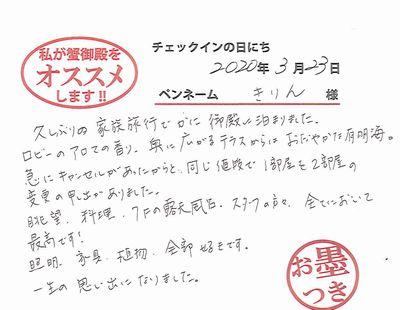 私が蟹御殿を
オススメ
します!!
チェックインの日にち
2020年 3月 23日
ペンネーム きりん 様
久しぶりの家族旅行でかに御殿に泊まりました。
ロビーのアロマの香り、奥に広がるテラスからはおだやかな有明海。
急にキャンセルがあったからと、同じ値段で1部屋を2部屋の
変更の申出がありました。
眺望、料理、7Fの露天風呂、スタッフの方々、全てにおいて
最高です!
照明、家具、植物、全部好きです。
一生の思い出になりました。
お墨
つき